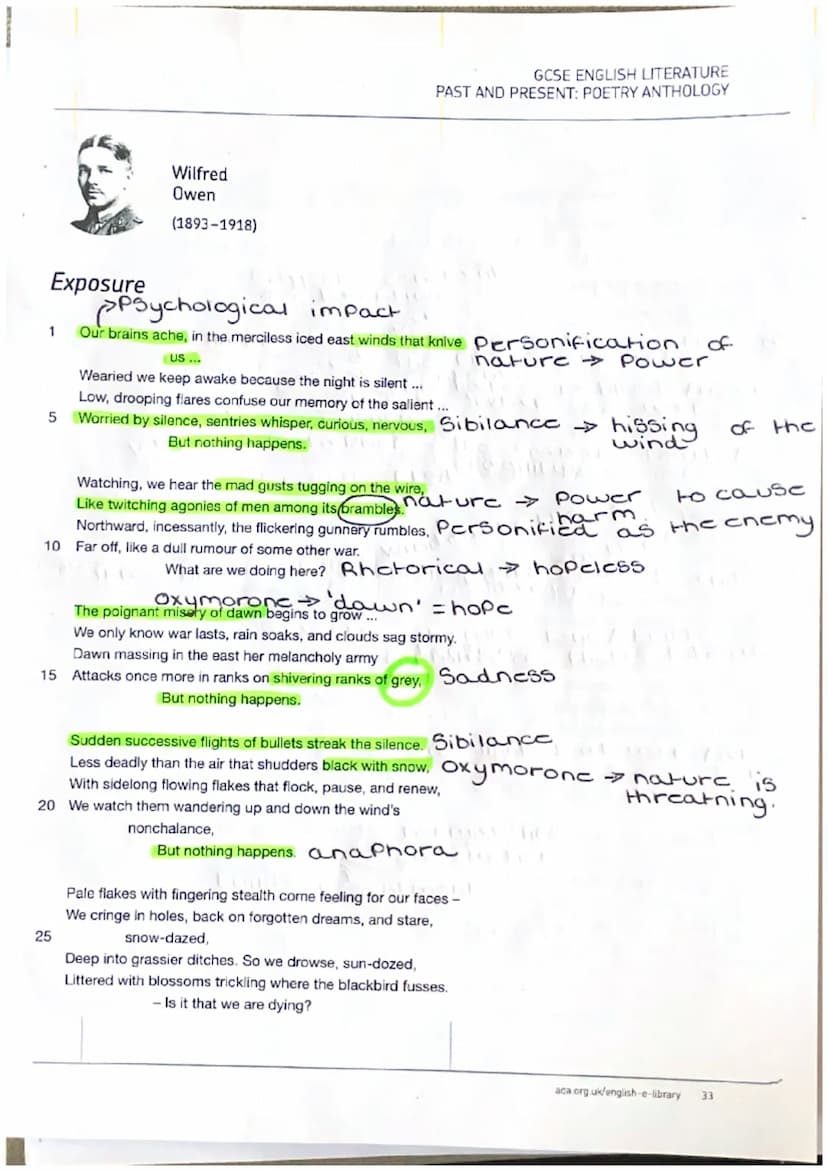 GCSE ENGLISH LITERATURE
PAST AND PRESENT: POETRY ANTHOLOGY
Wilfred
Owen
(1893–1918)
Exposure
→Psychological impact
1 Our brains ache, in the merciless iced east winds that knive Personification of
us ... nature → Power
Wearied we keep awake because the night is silent ...
Low, drooping flares confuse our memory of the salient ...
5 Worried by silence, sentries whisper, curious, nervous, Sibilance → hissing of the
But nothing happens. wind
Watching, we hear the mad gusts tugging on the wire,
Like twitching agonies of men among its brambles. nature → Power to cause
harm
Northward, incessantly, the flickering gunnery rumbles, Personified as the enemy
10 Far off, like a dull rumour of some other war.
What are we doing here? Rhetorical → hopeless
Oxymorone → 'dawn' = hope
The poignant misery of dawn begins to grow ...
We only know war lasts, rain soaks, and clouds sag stormy.
Dawn massing in the east her melancholy army
15 Attacks once more in ranks on shivering ranks of grey, Sadness
But nothing happens.
Sudden successive flights of bullets streak the silence. Sibilance
Less deadly than the air that shudders black with snow, Oxymorone → nature is
threatning.
With sidelong flowing flakes that flock, pause, and renew,
20 We watch them wandering up and down the wind's
nonchalance,
But nothing happens. anaphora
Pale flakes with fingering stealth come feeling for our faces –
We cringe in holes, back on forgotten dreams, and stare,
25 snow-dazed,
Deep into grassier ditches. So we drowse, sun-dozed,
Littered with blossoms trickling where the blackbird fusses.
– Is it that we are dying?
aca.org.uk/english-e-library 33